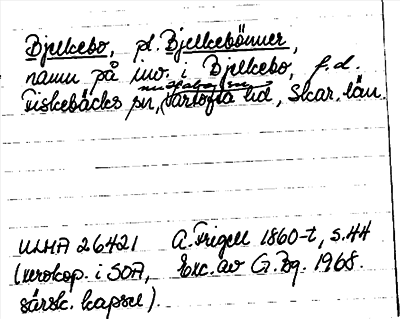 Bjelkebo, pl. Bjelkebönner,
namn på inv. i Bjelkebo, f.d.
Fiskebäcks sn, Vartofta hd, Skar. län.
ULMA 26421 A. Frigell 1860-t, s. 44
(xerokop. i SOA, Exc. av G. Bg. 1968.
särsk. kapsel).